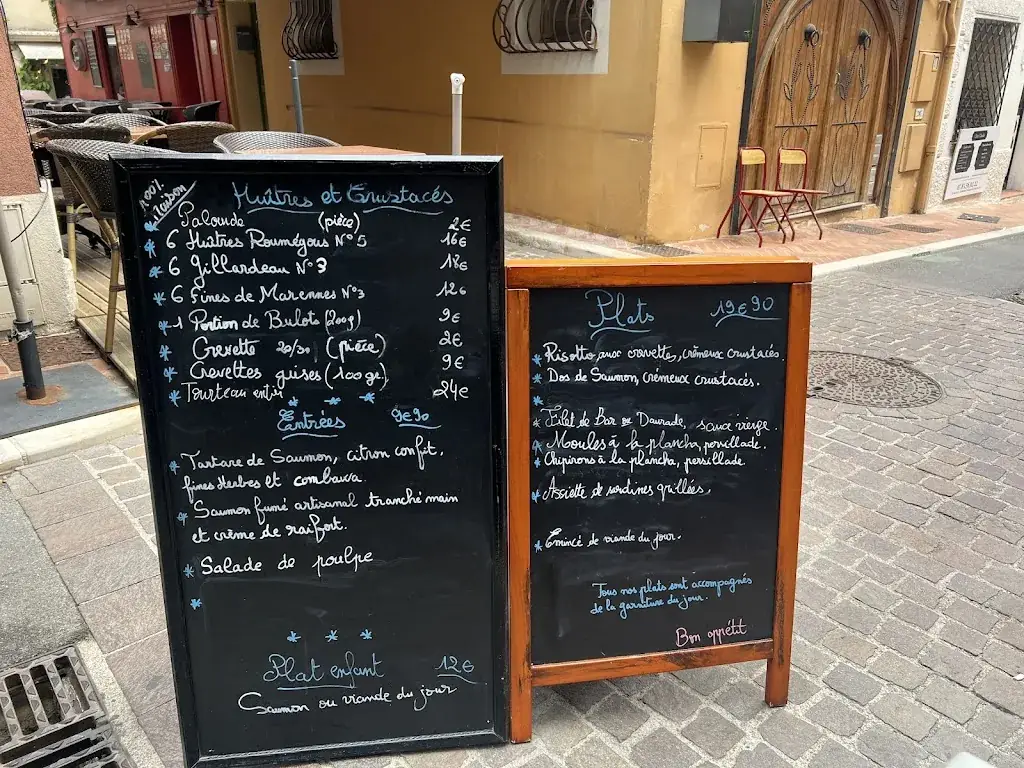 100%
maison
Huîtres et Crustacés
Palourde (pièce) 2€
6 Huîtres Roumégous N°5 16€
6 Gillardeau N°3 18€
6 Fines de Marennes N°3 12€
1 Portion de Bulots (200g) 9€
Crevette 20/30 (pièce) 2€
Crevettes grises (100gr) 9€
Tourteau entier 24€
Entrées 9€90
Tartare de Saumon, citron confit,
fines Herbes et combawa.
Saumon fumé artisanal tranché main
et crème de raifort.
Salade de poulpe
Plat enfant 12€
Saumon ou viande du jour
Plats 19€90
Risotto aux crevettes, crémeux crustacés.
Dos de Saumon, crémeux crustacés.
Filet de Bar ou Daurade, sauce vierge.
Moules à la plancha, persillade.
Chipirons à la plancha, persillade.
Assiette de sardines grillées,
Emincé de viande du jour.
Tous nos plats sont accompagnés
de la garniture du jour.
Bon appétit